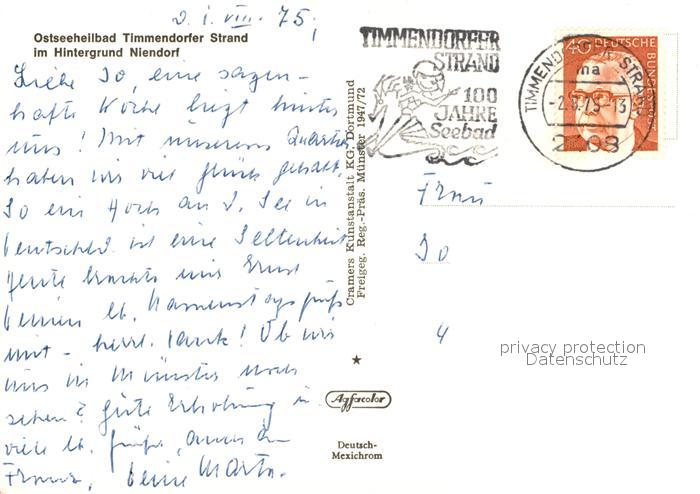 d. 1. VIII. 75,
Ostseeheilbad Timmendorfer Strand
im Hintergrund Niendorf
Liebe Jo, eine sagen-
hafte Woche liegt hinter
uns! Mit unserem Quartier
haben wir viel Glück gehabt.
So ein Hoch an d. See in
Deutschld. ist eine Seltenheit
Heute brachte mir Ernst
Deinen lb. Namenstagsgruß
mit - herzl. Dank! Ob wir
uns in Münster noch
sehen? Gute Erholung u.
viele lb. Grüße, auch an
Franz, Deine Marta.
Cramers Kunstanstalt KG, Dortmund
Freigeg. Reg.-Präs. Münster 1947/72
Agfacolor
Deutsch-
Mexichrom
TIMMENDORFER
STRAND
100
JAHRE
Seebad
40 DEUTSCHE BUNDESPOST
TIMMENDORFER STRAND
ma
-2.8.75-13
2408
Frau
Jo
4
privacy protection
Datenschutz